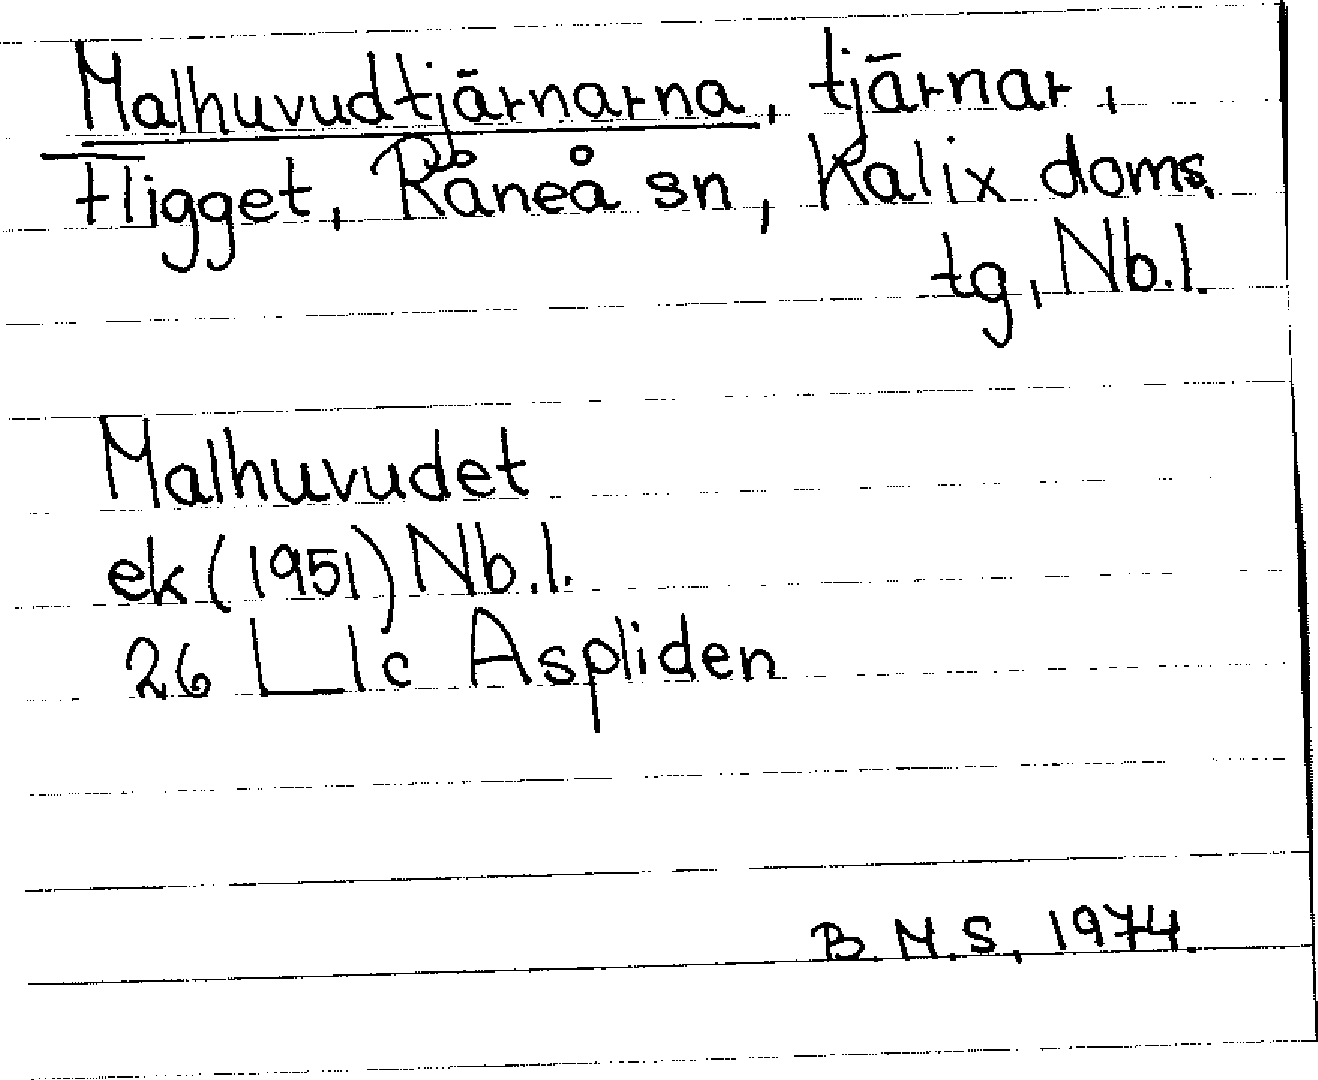 Malhuvudtjärnarna, tjärnar,
Fligget, Råneå sn, Kalix doms.
tg, Nb.l.
Malhuvudet
ek (1951) Nb.l.
26 L I c Aspliden
B.M.S, 1974.